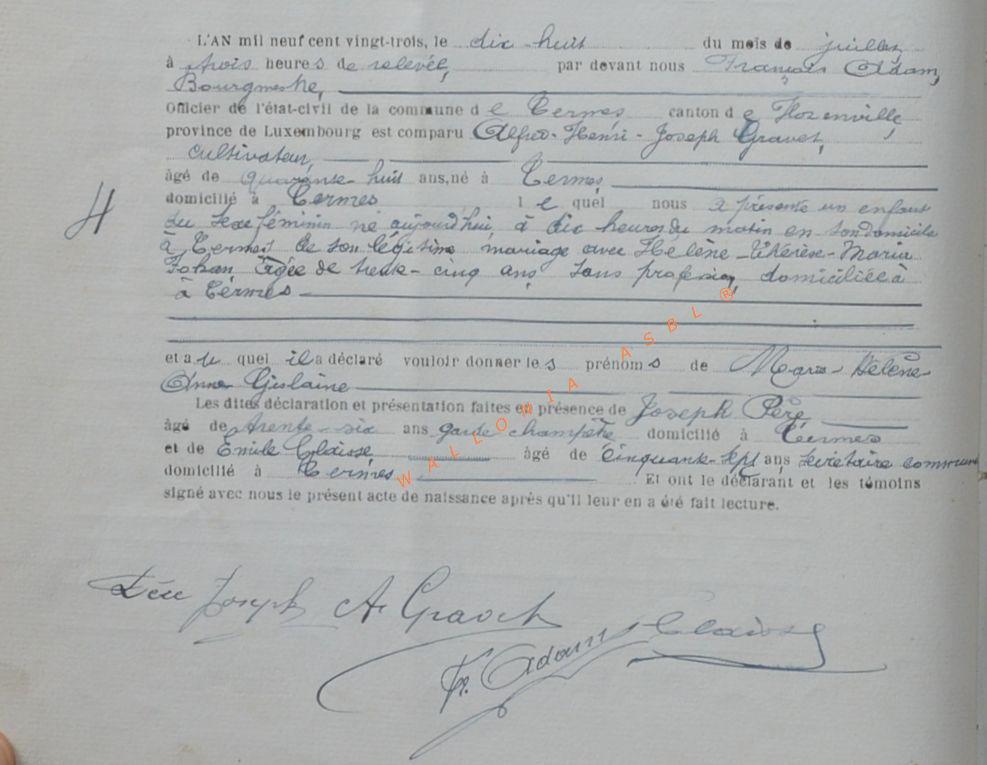 L'AN mil neuf cent vingt-trois, le dix huit du mois de juillet
à trois heures de relevée, par devant nous François Adam,
Bourgmestre,
Officier de l'état-civil de la commune de Termes canton de Florenville,
province de Luxembourg est comparu Alfred-Henri-Joseph Gravet,
cultivateur,
âgé de quarante-huit ans, né à Termes,
domicilié à Termes lequel nous a présenté un enfant
du sexe féminin né aujourd'hui, à dix heures du matin en son domicile
à Termes de son légitime mariage avec Hélène-Thérèse-Maria
âgée de trente-cinq ans, sans profession, domiciliée à
à Termes
et au quel il a déclaré vouloir donner les prénoms de Maria-Hélène-
Anne Gislaine
Les dites déclaration et présentation faites en présence de Joseph
âgé de trente-six ans garde champêtre domicilié à Termes
et de Emile Claisse âgé de cinquante-sept ans secrétaire communal
domicilié à Termes Et ont le déclarant et les témoins
signé avec nous le présent acte de naissance après qu'il leur en a été fait lecture.
4
WALLONIA ASBL ®
Joseph A. Gravet
F. Adam Claisse